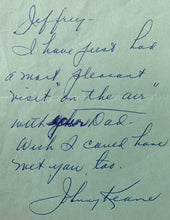 Jeffrey—
I have just had
a most pleasant
visit "on the air"
with your Dad.
Wish I could have
met you, too.
Johnny Keane